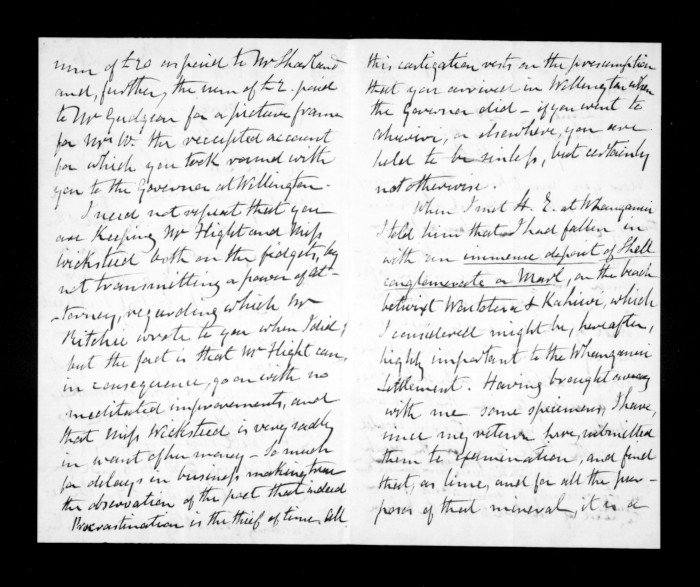 sum of £20 as paid to Mr Sharland
and, further, the sum of £2. paid
to Mr Gudgeon for a picture frame
for Mrs W. the receipted account
for which you took round with
you to the Governor at Wellington.
I need not repeat that you
are keeping Mr Flight and Miss
Wicksteed both on the fidgets, by
not transmitting a power of at-
-torney, regarding which Mr
Ritchie wrote to you when I did,
but the fact is that Mr Flight can,
in consequence, go on with no
meditated improvements, and
that Miss Wicksteed is very sadly
in want of her money - So much
for delays in business making true
the observation of the poet that indeed
Procrastination is the thief of time. All
this castigation rests on the presumption
that you arrived in Wellington when
the Governor did - if you went to
or elsewhere, you are
held to be sinless, but certainly
not otherwise.
When I met H. E. at Whanganui
I told him that I had fallen in
with an immense deposit of Shell
conglomerate or Marl, on the beach
betwixt Waitotara & Kahiwi, which
I considered might be, hereafter,
highly important to the Whanganui
Settlement. Having brought away
with me some specimens, I have,
since my return here, submitted
them to examination, and find
that, as lime, and for all the pur-
poses of that mineral, it is a